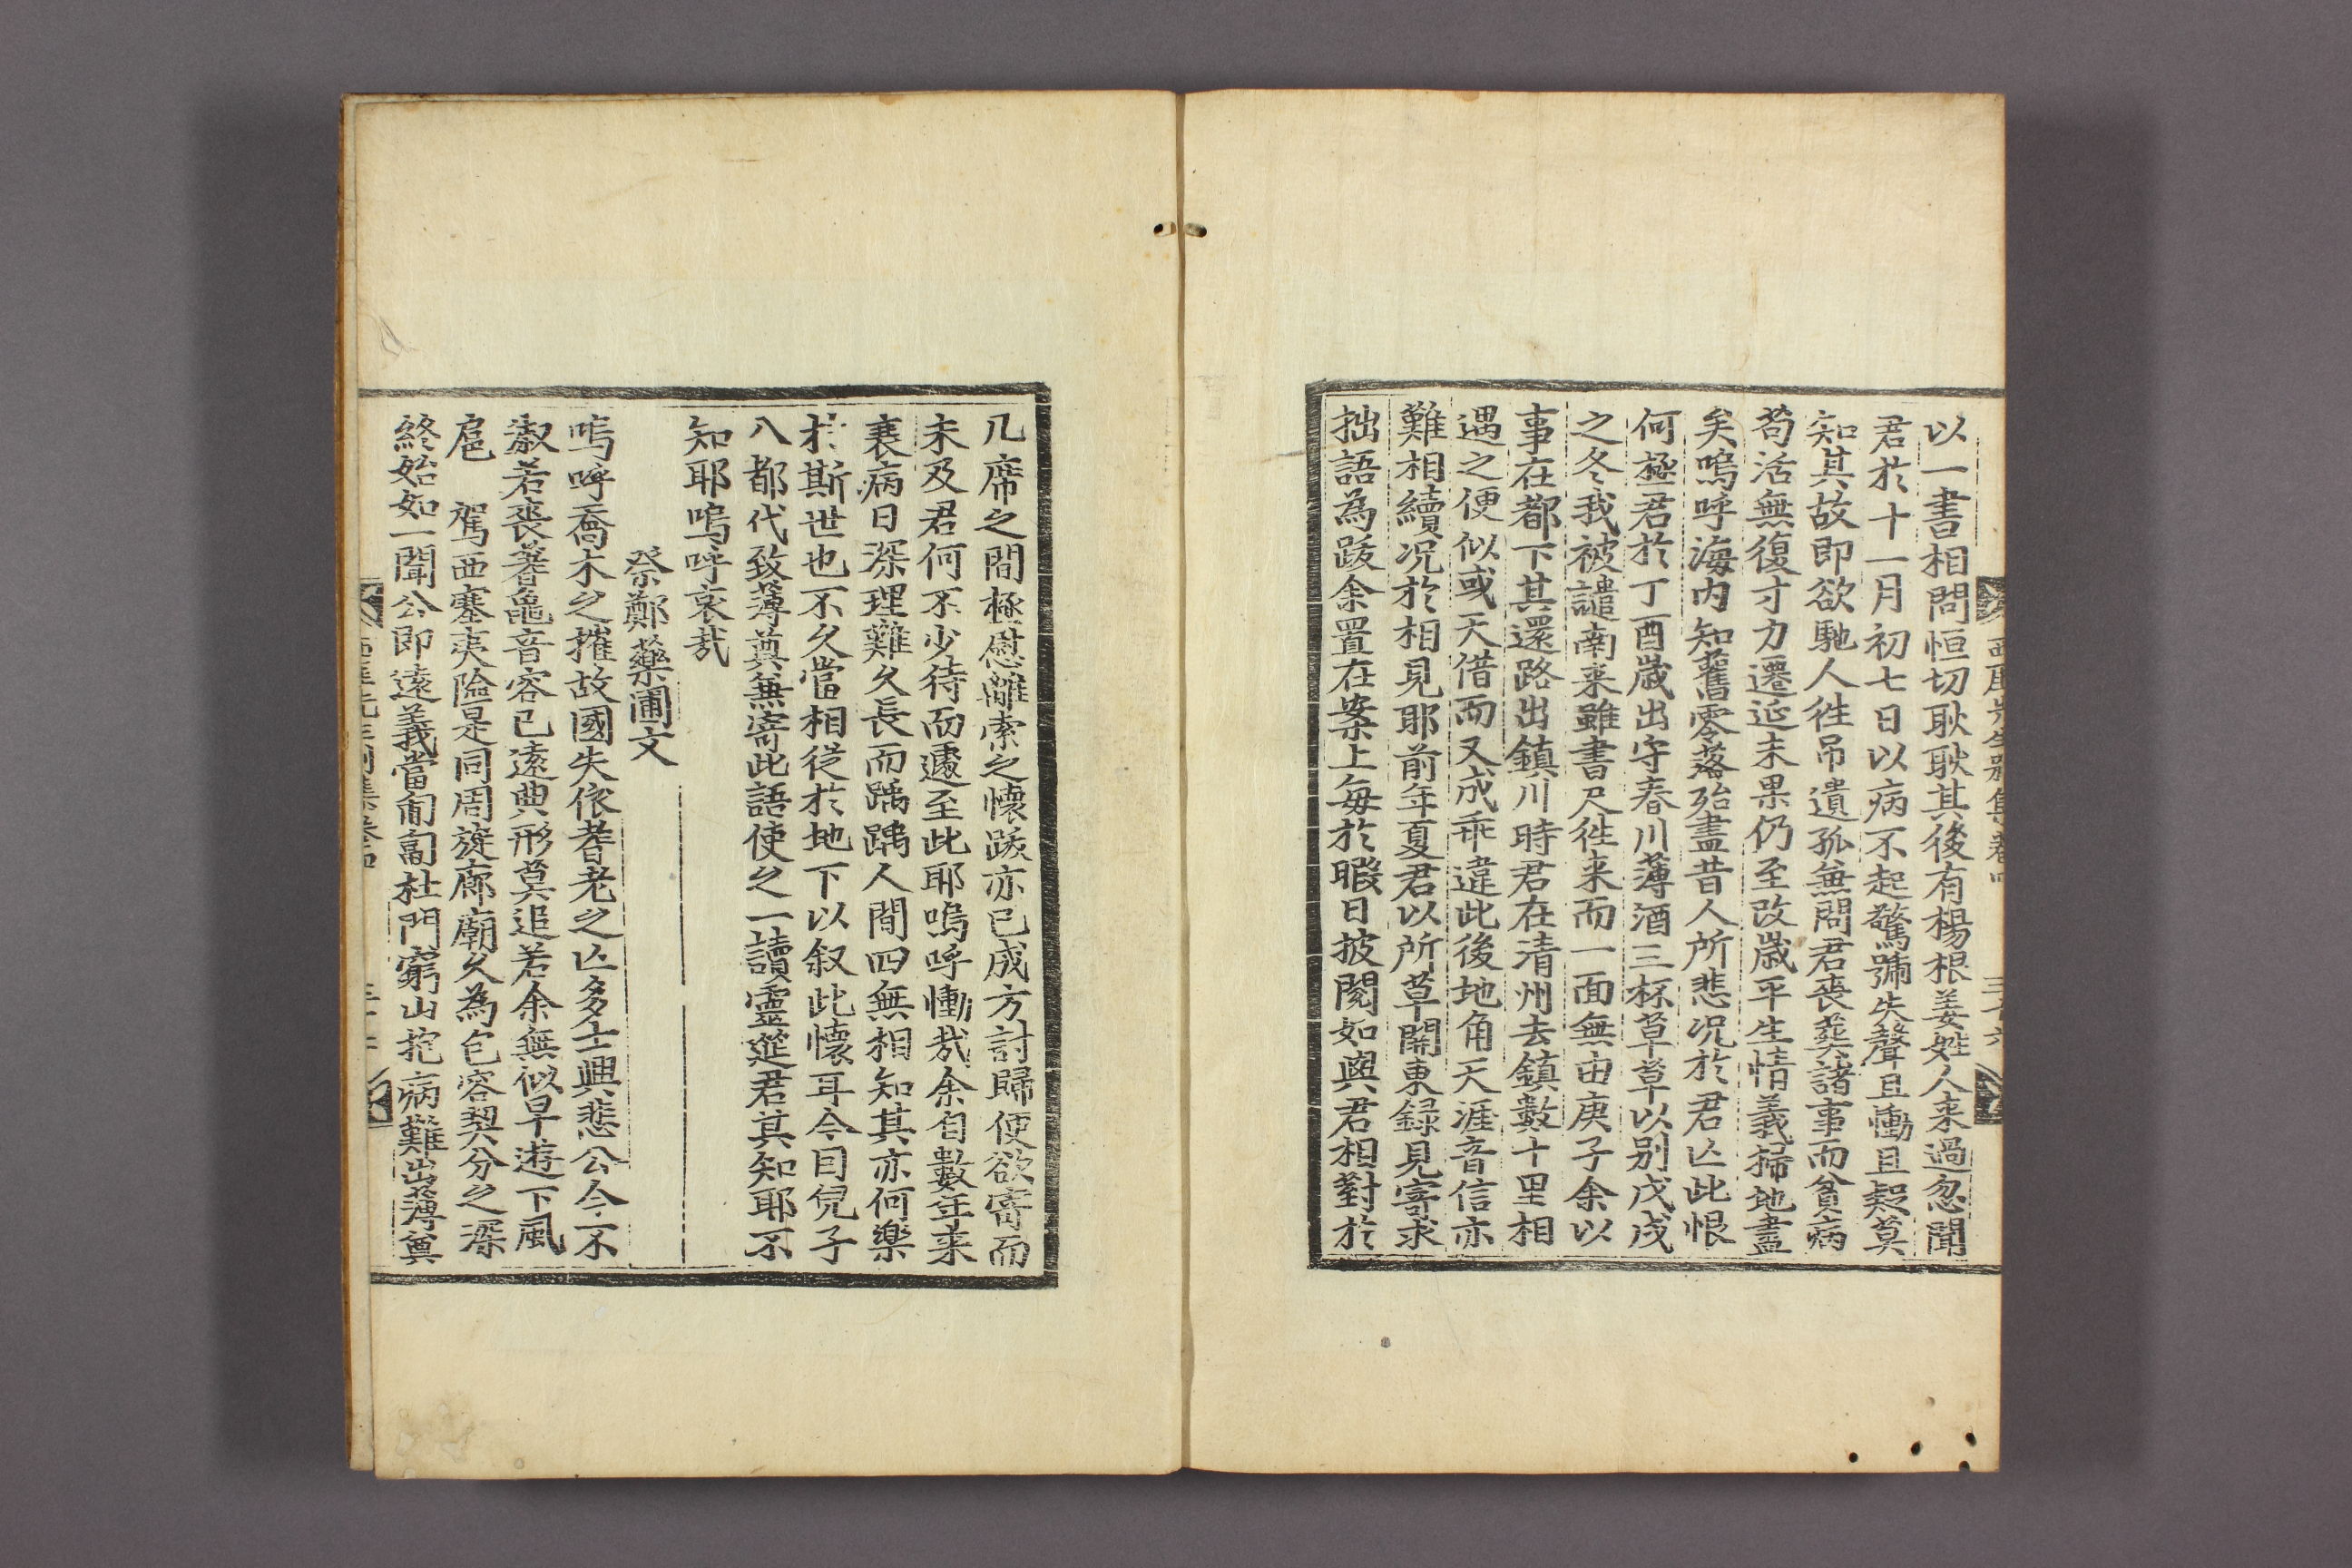 以一書相問恒切耿耿其後有楊根姜姓人来過忽聞
君於十一月初七日以病不起驚號失聲且慟且疑莫
知其故即欲馳人徃吊遺孤無問君喪葬諸事而貧病
苟活無復才力遷延未果仍至改歲平生情義掃地盡
矣嗚呼海内知舊零落殆盡昔人所悲况於君亡此恨
何極君於丁酉歲出守春川薄酒三杯草草以别戊戌
之冬我被譴南来雖書尺徃来而一面無由庚子余以
事在都下其還路出鎮川時君在清州去鎮數十里相
遇之便似或天借而又成乖違此後地角天涯音信亦
難相續况於相見耶前年夏君以所草關東録見寄求
拙語為跋余置在案上每於暇日披閱如與君相對於
几席之間極慰離索之懷跋亦已成方討歸便欲寄而
未及君何不少待而遽至此耶嗚呼慟哉余自數年来
衰病日深理難久長而踽踽人間四無相知其亦何樂
於斯世也不久當相從於地下以叙此懷耳今因兒子
入都代致薄奠兼寄此語使之一讀靈筵君其知耶不
知耶嗚呼哀哉
祭鄭藥圃文
嗚呼喬木之摧故國失依耆老之亡多士興悲公今不
淑若喪蓍龜音容已遠典形莫追若余無似早遊下風
扈　駕西塞夷險是同周旋廊廟久為包容契分之深
終始如一聞公即遠義當匍匐杜門窮山抱病難出薄奠